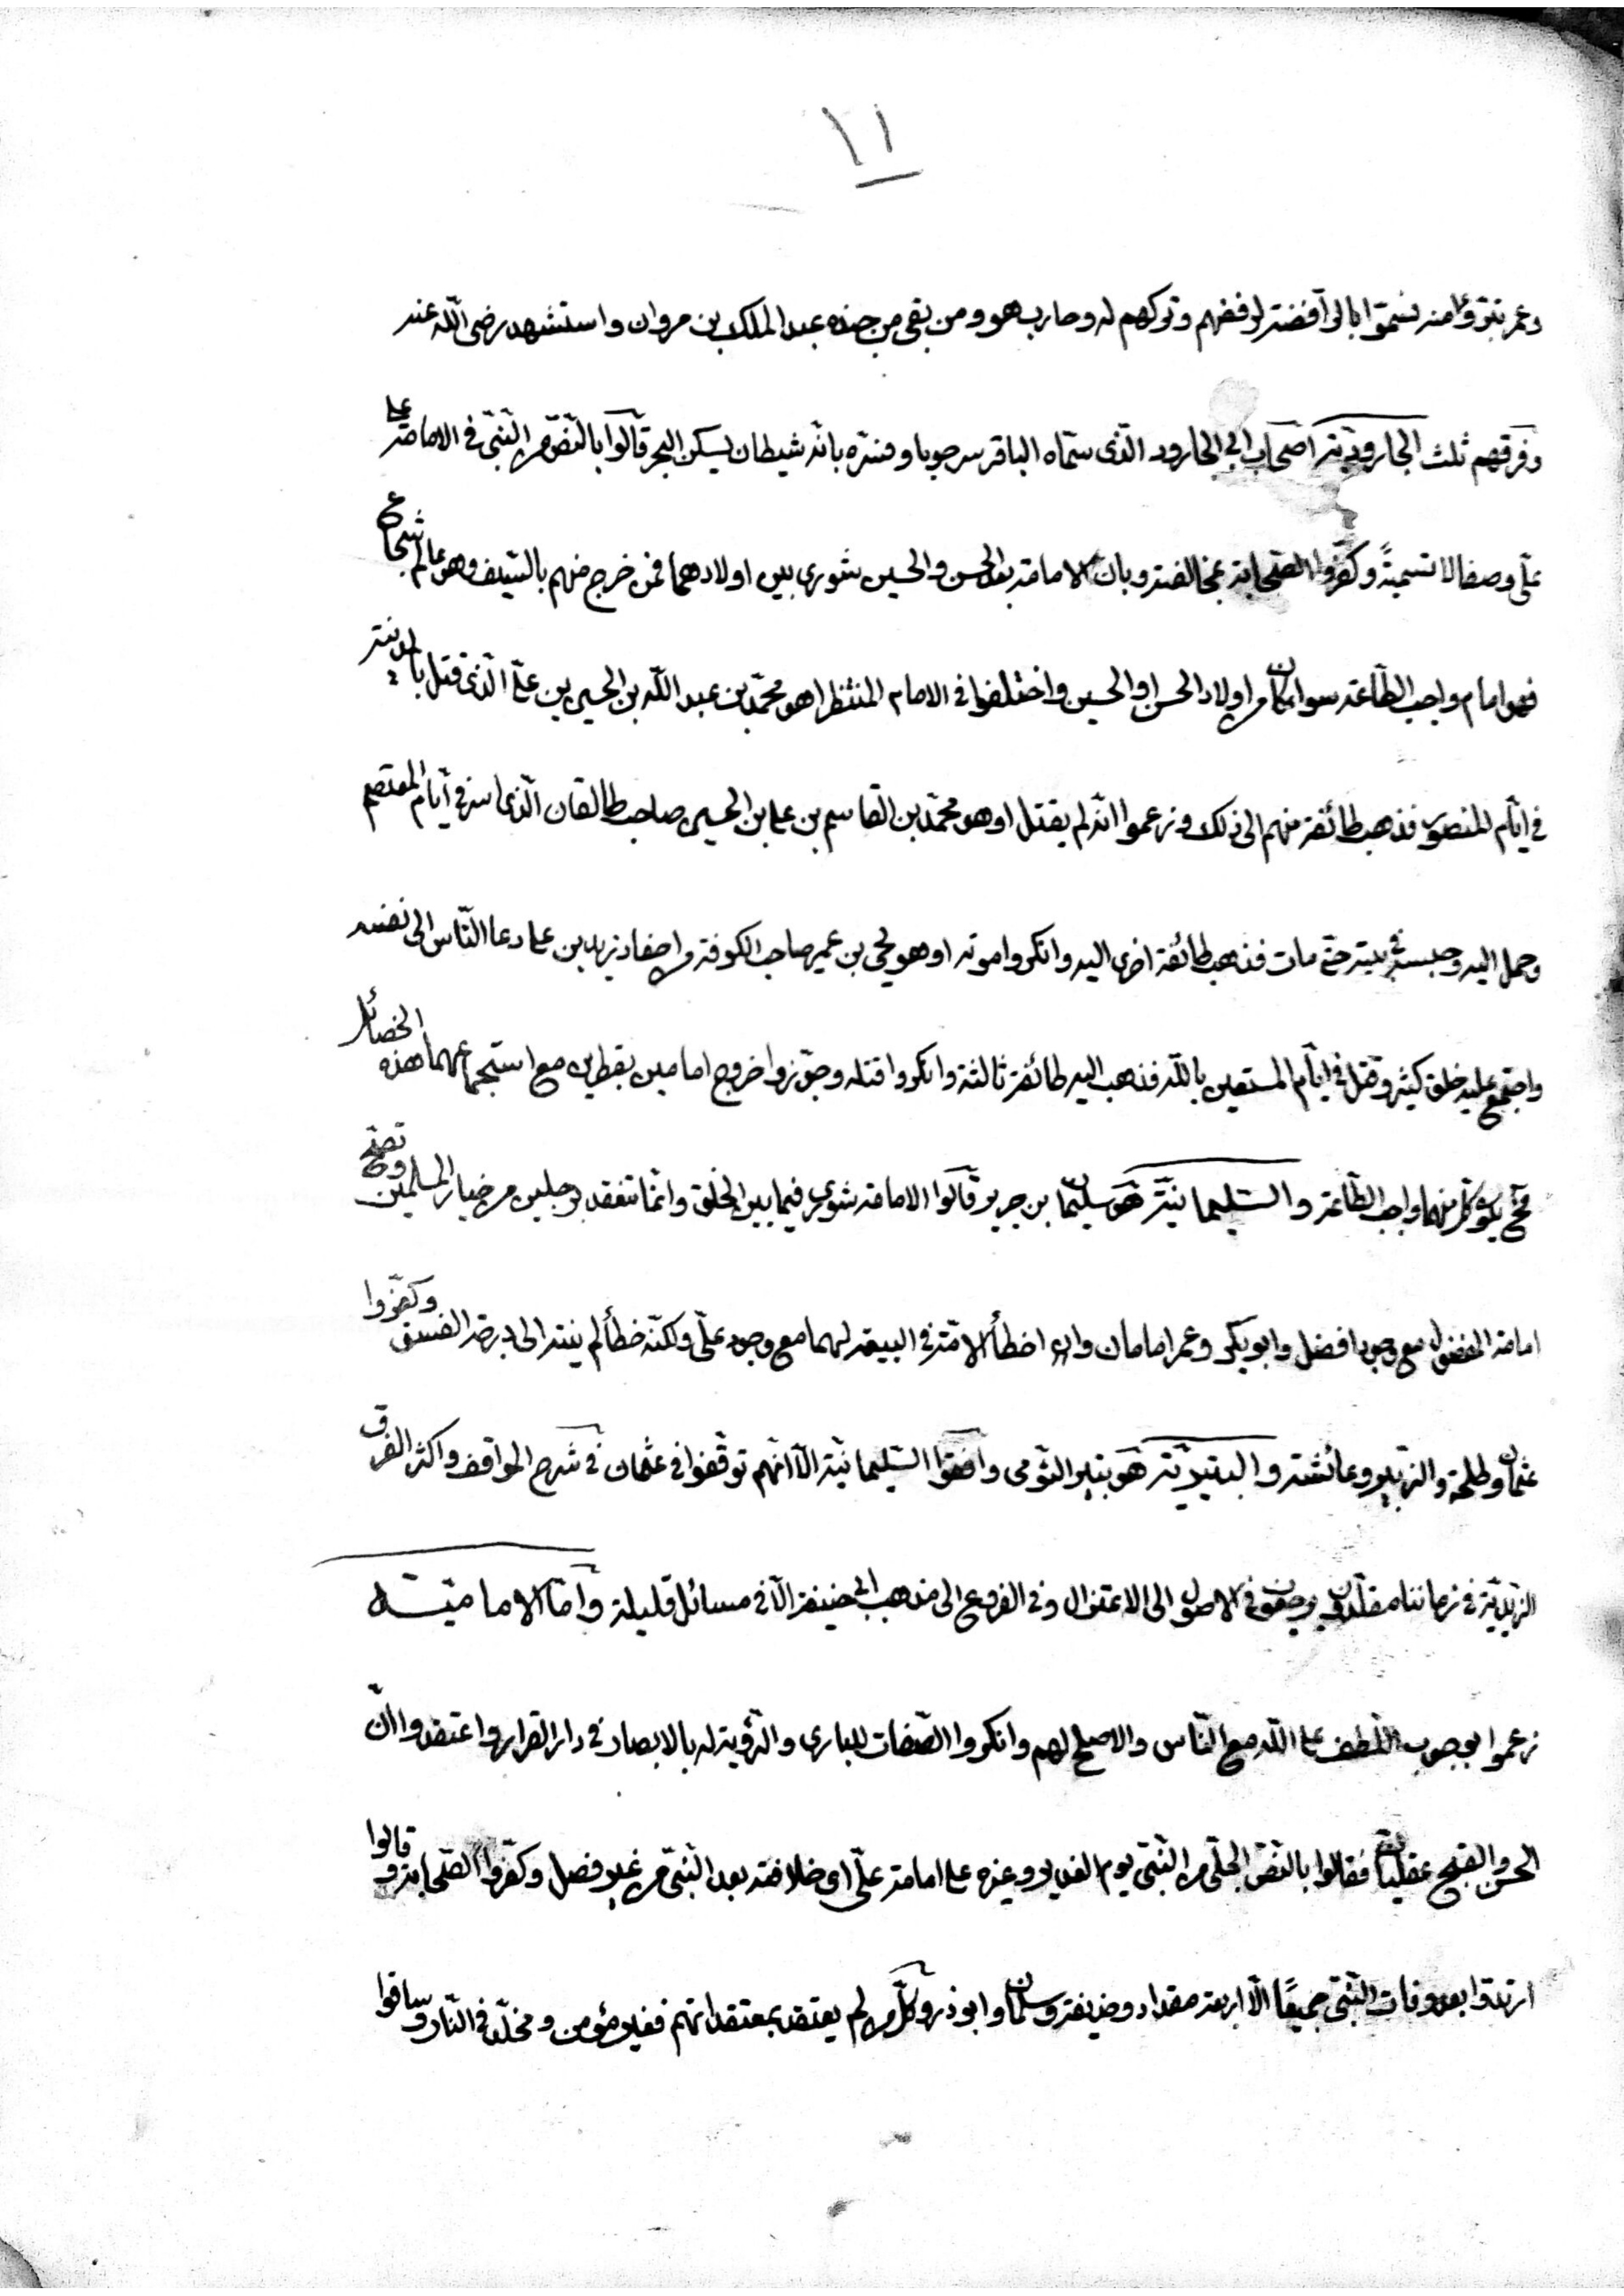 ١١
وعمر بتبرؤا منه فسموا بالرآفضة لرفضهم وتركهم له وحارب هو ومن بقى من جنده عبد الملك بن مروان واستشهد رضى الله عنه
وفرقهم ثلث الجاروديّة اصحاب ابي الجارود الّذى سمّاه الباقر سرحوبا وفسّره بانّه شيطان يسكن البحر قالوا بالنّصّ من النّبىّ في الامامة على
علىّ وصفا لا تسميةً وكفّروا الصّحابة بمخالفته وبانّ الامامة بعد الحسن والحسين شورى بين اولادهما فمن خرج منهم بالسّيف وهو عالم شجاع
فهو امام واجب الطّاعة سوا كان من اولاد الحسن او الحسين واختلفوا في الامام المنتظر اهو محمّد بن عبد اللّه بن الحسين بن على الّذى قتل بالمدينة
في ايّام المنصور فذهب طائفة منهم الى ذلك وزعموا انّه لم يقتل او هو محمّد بن القاسم بن على بن الحسين صاحب طالقان الّذى اسر في ايّام المعتصم
وحمل اليه وحبسه في بيته حتّى مات فذهب طائفة اخرى اليه وانكروا موته او هو يحيى بن عمير صاحب الكوفة من احفاد زيد بن على دعا النّاس الى نفسه
واجتمع عليه خلق كثير وقتل في ايّام المستعين باللّه فذهب اليه طائفة ثالثة وانكروا قتله وجوّزوا خروج امامين بقطرين مع استجماعهما هذه الخصائل
فح يكون كل منهما واجب الطّاعة والسّليمانيّة هو سليمان بن جرير قالوا الامامة شورى فيما بين الخلق وانّما تنعقد برجلين من خيار المسلمين وتصحّ
امامة المفضول مع وجود افضل وابو بكر وعمر امامان وان اخطأ الامّة في البيعة لهما مع وجود علىّ ولكنّه خطأ لم ينته الى درجة الفسق وكفّروا
عثمان وطلحة والزّبير وعائشة والبتيريّة هو بتير الثّومى وافقوا السّليمانيّة الّا انّهم توقّفوا في عثمان في شرح المواقف واكثر الفرق
الزّيديّة في زماننا مقلّدون يرجعون في الاصول الى الاعتزال وفى الفروع الى مذهب ابى حنيفة الّا في مسائل قليلة وامّا الاماميّة
زعموا بوجوب اللّطف على اللّه مع النّاس والاصلح لهم وانكروا الصّفات للبارى والرّؤية له بالابصار في دار القرار واعتقدوا انّ
الحسن والقبح عقليّان فقالوا بالنّصّ الجلّى من النّبىّ يوم الغدير وغيره على امامة علىّ اى خلافته بعد النّبىّ من غير فصل وكفّروا الصّحابة وقالوا
ارتدّوا بعد وفات النّبىّ جميعًا الّا اربعة مقداد وحذيفة وسلمان وابو ذر وكلّ من لم يعتقد بمعتقداتهم فغير مؤمن ومخلّد في النّار وساقوا